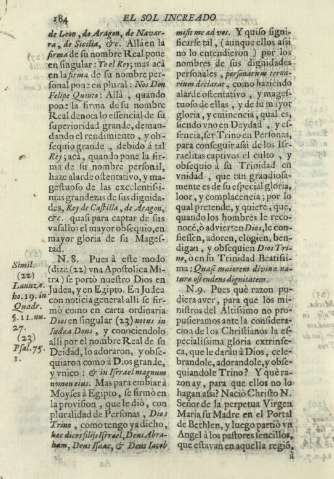 184 EL SOL INCREADO
de Leon, de Aragon, de Navar-
ra, de Sicilia, &c. Allá en la
firma de su nombre Real pone
en singular: Yo el Rey; mas acá
en la firma de su nombre per-
sonal pone en plural: Nos Don
Felipe Quinto: Allá, quando
pone la firma de su nombre
Real denota lo essencial de su
superioridad grande, deman-
dando el rendimiento, y ob-
sequio grande, debido á tal
Rey; acá, quando pone la fir-
ma de su nombre personal,
haze alarde ostentativo, y ma-
gestuoso de las excelentissi-
mas grandezas de sus dignida-
des, Rey de Castilla, de Aragon,
&c. quas para captar de sus
vasallos el mayor obsequio, en
mayor gloria de su Mages-
tad.
N. 8. Pues à este modo
(dize (22) vna Apostolica Mi-
tra) se portó nuestro Dios en
Judea, y en Egipto. En Judea
con noticia general alli se fir-
mó como en carta ordinaria
Dios en singular (23) notus in
Judæa Deus, y conociendolo
assi por el nombre Real de su
Deidad, lo adoraron, y obse-
quiaron como à Dios grande,
y vnico: & in Israel magnum
nomen eius. Mas para embiar à
Moyses à Egipto, se firmó en
la provision, que le dió, con
pluralidad de Personas, Dios
Trino, como tengo ya dicho,
hæc dices filijs Israel, Deus Abra-
ham, Deus Isaac, & Deus Iacob
Simil.
(22)
Lanuza
ho. 19. in
Quadr.
§. 11. nu.
27.
(23)
Psal. 75.
1.
misit me ad vos. Y quiso signi-
ficarse tal, (aunque ellos assi
no lo entendieron) por los
nombres de sus dignidades
personales, personarum
declarat, como haziendo
alarde ostentativo, y mages-
tuoso de ellas, y de su mayor
gloria, y eminencia, qual es,
siendo vno en Daydad, y es-
sencia, ser Trino en Personas,
para conseguir assi de los Is-
raelitas captivos el culto, y
obsequio à su Trinidad en
vnidad, que tan grandiosa-
mente es de su especial gloria,
loor, y complacencia; por lo
qual pretende, y quiere, que,
quando los hombres le reco-
nocé, ò advierten Dios, le con-
fiessen, adoren, elogien, ben-
digan, y obsequien Dios Tri-
no, ò en su Trinidad Beatissi-
ma: Quasi maiorem divinæ na-
turæ ostendens dignitatem.
N. 9. Pues què razon pu-
diera aver, para que los mi-
nistros del Altissimo no pro-
pusieramos ante la considera-
cion de los Christianos la es-
pecialissima gloria extrinse-
ca, que le darán à Dios, cele-
brandole, adorandole, y obse-
quiandole Trino? Y què ra-
zon ay, para que ellos no lo
hagan assi? Nació Christo N.
Señor de la perpetua Virgen
Maria su Madre en el Portal
de Bethlen, y luego partió vn
Angel à los pastores sencillos,
que estavan en aquella regió,